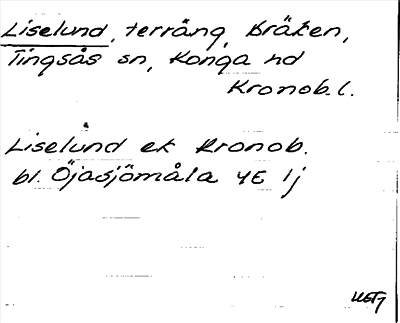 Liselund, terräng, Bräten,
Tingsås sn, Konga hd
Kronob. l.
Liselund ek Kronob.
bl. Öjasjömåla 4E 1j